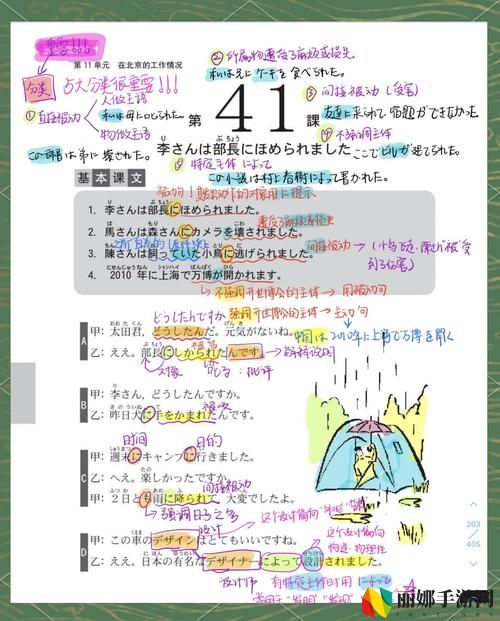 重要!!!
第 11 单元 在北京的工作情况
分类
占大分类很重要!!!
① 直接被动
人做主语
私は母に叱られた。
物做主语
② 所属物遭受了麻烦或损失。
私は兄にケーキを食べられた。
③ 间接被动(受害)
友達に来られて宿題ができなかった
④ 不强调主体
ここでビルが建てられた。
第 41 課
李さんは部長にほめられました
⑤ 特定主体 によって
この小説は村上春樹によって書かれた。
基本课文
1. 李さんは部長にほめられました。
2. 馬さんは森さんにカメラを壊されました。
遭受了麻烦或损失
3. 陳さんは飼っていた小鳥に逃げられました。
间接被动
4. 2010 年に上海で万博が開かれます。
不强调开世博会的主体→用被动句
强调开世博会的主体→主动句
中国は2010年に上海で万博を開く
A
どうしたんですか
甲: 太田君, どうしたんだ。元気がないね。
乙: ええ。部長にしかられたんです。
解释说明
对象
しかる:批评
B
甲: 李さん, どうしたんですか。
乙: 昨日犬に手をかまれたんです。
被咬
C
时间
目的
甲: 週末にキャンプに行きました。
乙: へえ。楽しかったですか。
间接被动
甲: 2 日とも雨に降られて大変でしたよ。
强调日子之多
D
设计
甲: この車のデザインはとてもいいですね。
这个设计偏向
乙: ええ。日本の有名なデザイナーによって設計されました。
这个设计偏向
构造·物理性
设计师
有特定主体时用 によって
常用于"发明""发现"
203
405
丽娜手游网